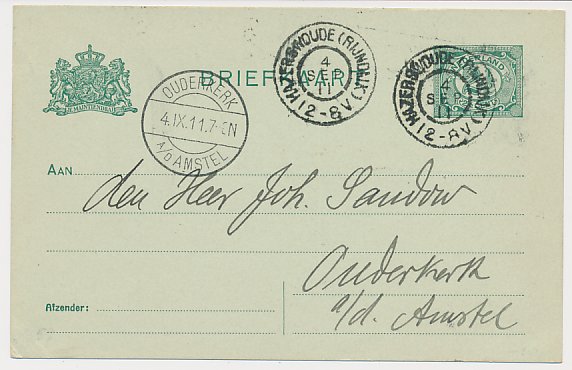 BRIEFKAART
HAZERSWOUDE (RIJNDIJK)
4
SEP
11
12-8V
HAZERSWOUDE (RIJNDIJK)
4
SEP
11
12-8V
OUDERKERK
4.IX.11.7-8N
A/D AMSTEL
JE MAINTIENDRAI
AAN
den Heer Joh. Sandow
Ouderkerk
a/d. Amstel
Afzender: